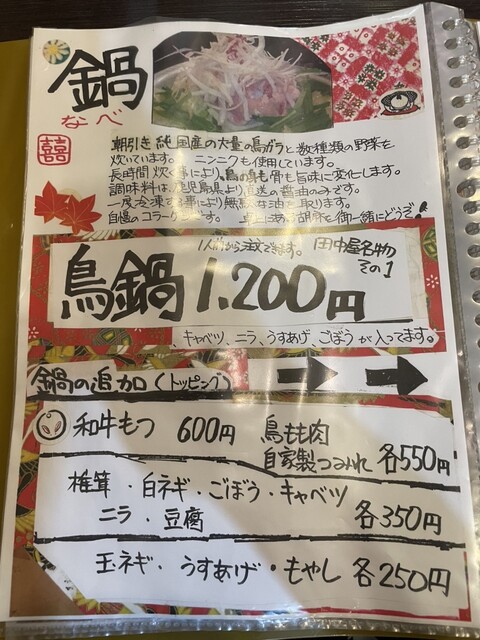 鍋
なべ
囍
朝引き純国産の大量の鳥ガラと数種類の野菜を
炊いています。ニンニクも使用しています。
長時間炊く事により、鳥の身も骨も旨味に変化します。
調味料は、鹿児島県より直送の醤油のみです。
一度冷凍する事により無駄な油を取ります。
自慢のコラーゲンです。卓上にある胡麻を御一緒にどうぞ!
1人前から注文できます。田中屋名物
その1
鳥鍋 1,200円
、キャベツ、ニラ、うすあげ、ごぼうが入ってます。
鍋の追加(トッピング)
和牛もつ 600円
鳥もも肉
自家製つみれ 各550円
椎茸・白ネギ・ごぼう・キャベツ
ニラ・豆腐 各350円
玉ネギ・うすあげ・もやし 各250円